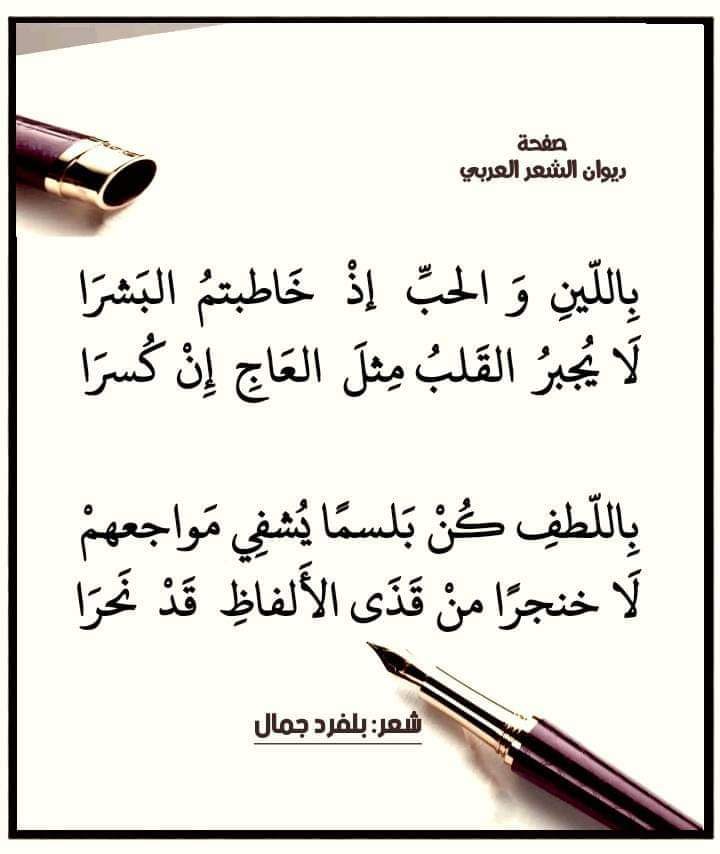 صفحة
ديوان الشعر العربي
بِاللّينِ وَ الحبِّ إذْ خَاطبتمُ البَشرَا
لَا يُجبرُ القَلبُ مِثلَ العَاجِ إِنْ كُسرَا
بِاللّطفِ كُنْ بَلسمًا يُشفِي مَواجعهمْ
لَا خنجرًا منْ قَذَى الأَلفاظِ قَدْ نَحرَا
شعر: بلفرد جمال